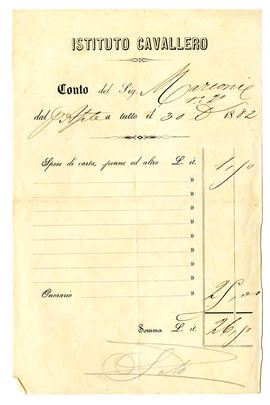 ISTITUTO CAVALLERO
Conto del Sig. Marconi
dal 1 Aple a tutto il 30 D 1882
Spese di carta, penne ed altro L. it. 1,50
»
»
»
»
»
»
»
Onorario » 25,00
Somma L. it. 26,50